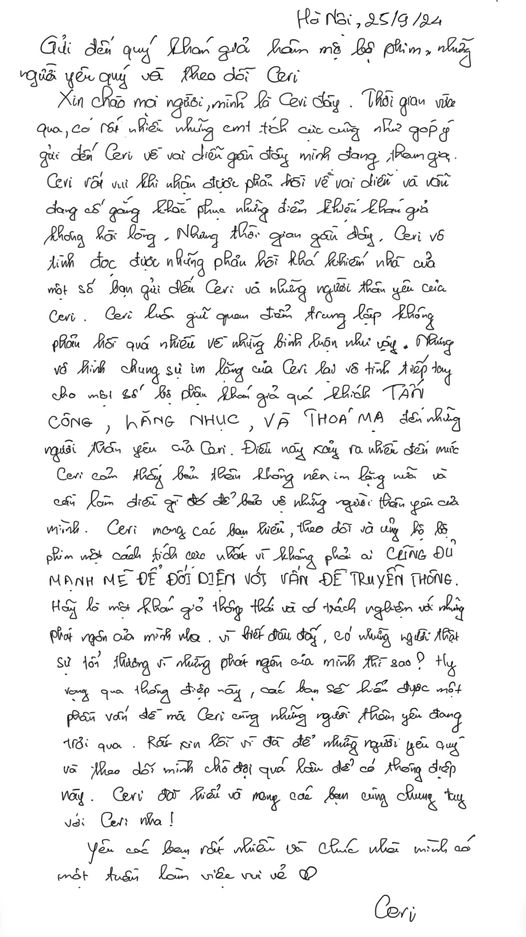 Hà Nội, 25/9/24
Gửi đến quý khán giả hâm mộ bộ phim, những
người yêu quý và theo dõi Ceri
Xin chào mọi người, mình là Ceri đây. Thời gian vừa
qua, có rất nhiều những cmt tích cực cũng như góp ý
gửi đến Ceri về vai diễn gần đây mình đang tham gia.
Ceri rất vui khi nhận được phản hồi về vai diễn và vẫn
đang cố gắng khắc phục những điểm khiến khán giả
không hài lòng. Nhưng thời gian gần đây, Ceri vô
tình đọc được những phản hồi khá khiếm nhã của
một số bạn gửi đến Ceri và những người thân yêu của
Ceri. Ceri luôn giữ quan điểm trung lập không
phản hồi quá nhiều về những bình luận như vậy. Nhưng
vô hình chung sự im lặng của Ceri lại vô tình tiếp tay
cho một số bộ phận khán giả quá khích TẤN
CÔNG, LĂNG NHỤC, VÀ THOÁ MẠ đến những
người thân yêu của Ceri. Điều này xảy ra nhiều đến mức
Ceri cảm thấy bản thân không nên im lặng mãi và
cần làm điều gì đó để bảo vệ những người thân yêu của
mình. Ceri mong các bạn hiểu, theo dõi và ủng hộ bộ
phim một cách tích cực nhất vì không phải ai CŨNG ĐỦ
MẠNH MẼ ĐỂ ĐỐI DIỆN VỚI VẤN ĐỀ TRUYỀN THÔNG.
Hãy là một khán giả thông thái và có trách nghiệm với những
phát ngôn của mình nha. Vì biết đâu đấy, có những người thật
sự tổn thương vì những phát ngôn của mình thì sao? Hy
vọng qua thông điệp này, các bạn sẽ hiểu được một
phần vấn đề mà Ceri cùng những người thân yêu đang
trải qua. Rất xin lỗi vì đã để những người yêu quý
và theo dõi mình chờ đợi quá lâu để có thông điệp
này. Ceri đã hiểu và mong các bạn cùng chung tay
với Ceri nha!
Yêu các bạn rất nhiều và chúc nhà mình có
một tuần làm việc vui vẻ ♡
Ceri